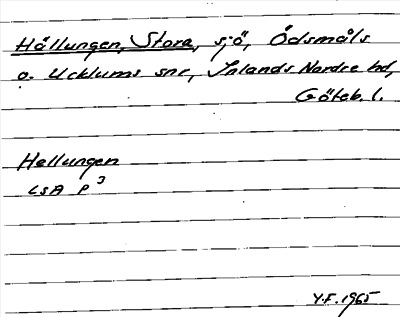 Hällungen, Stora, sjö, Ödsmåls
o. Ucklums snr, Inlands Nordre hd,
Göteb. l.
Hellungen
LSA P³
Y.F. 1965